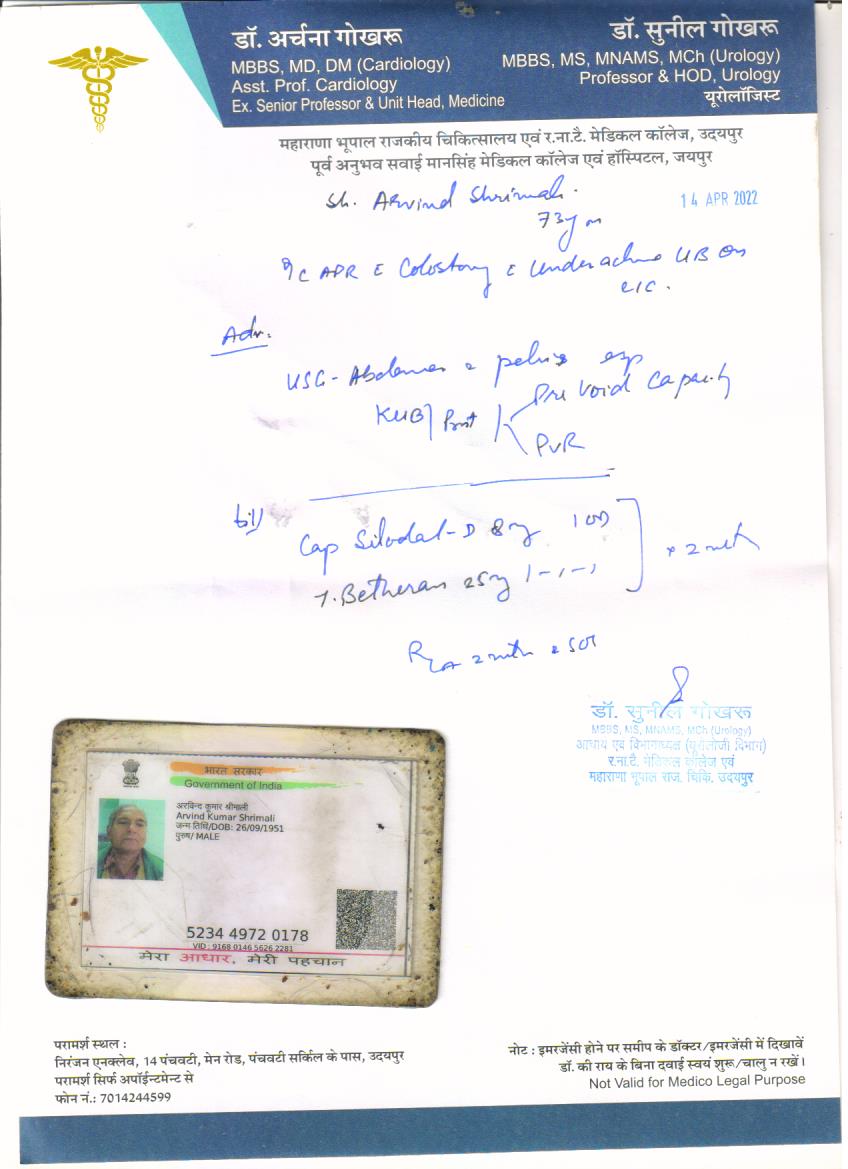 डॉ. अर्चना गोखरू
MBBS, MD, DM (Cardiology)
Asst. Prof. Cardiology
Ex. Senior Professor & Unit Head, Medicine
डॉ. सुनील गोखरू
MBBS, MS, MNAMS, MCh (Urology)
Professor & HOD, Urology
यूरोलॉजिस्ट
महाराणा भूपाल राजकीय चिकित्सालय एवं र.ना.टै. मेडिकल कॉलेज, उदयपुर
पूर्व अनुभव सवाई मानसिंह मेडिकल कॉलेज एवं हॉस्पिटल, जयपुर
Sh. Arvind Shrimali
14 APR 2022
73y m
APR c Colostomy c Underactive UB on
CIC.
Adv.
USG - Abdomen & pelvis esp
KUB / Prost
Pre Void Capacity
PVR
Cap Silodal-D 8mg 1 OD
T. Betheran 25mg 1-1-1
x 2 mth
डॉ. सुनील गोखरू
MBBS, MS, MNAMS, MCh (Urology)
आचार्य एवं विभागाध्यक्ष (यूरोलोजी विभाग)
र.ना.टै. मेडिकल कॉलेज एवं
महाराणा भूपाल राज. चिकि. उदयपुर
भारत सरकार
Government of India
अरविन्द कुमार श्रीमाली
Arvind Kumar Shrimali
जन्म तिथि/DOB: 26/09/1951
पुरुष/ MALE
5234 4972 0178
VID : 9168 0146 5626 2281
मेरा आधार, मेरी पहचान
परामर्श स्थल :
निरंजन एनक्लेव, 14 पंचवटी, मेन रोड, पंचवटी सर्किल के पास, उदयपुर
परामर्श सिर्फ अपॉईन्टमेन्ट से
फोन नं.: 7014244599
नोट : इमरजेंसी होने पर समीप के डॉक्टर/इमरजेंसी में दिखावें
डॉ. की राय के बिना दवाई स्वयं शुरू/चालु न रखें।
Not Valid for Medico Legal Purpose